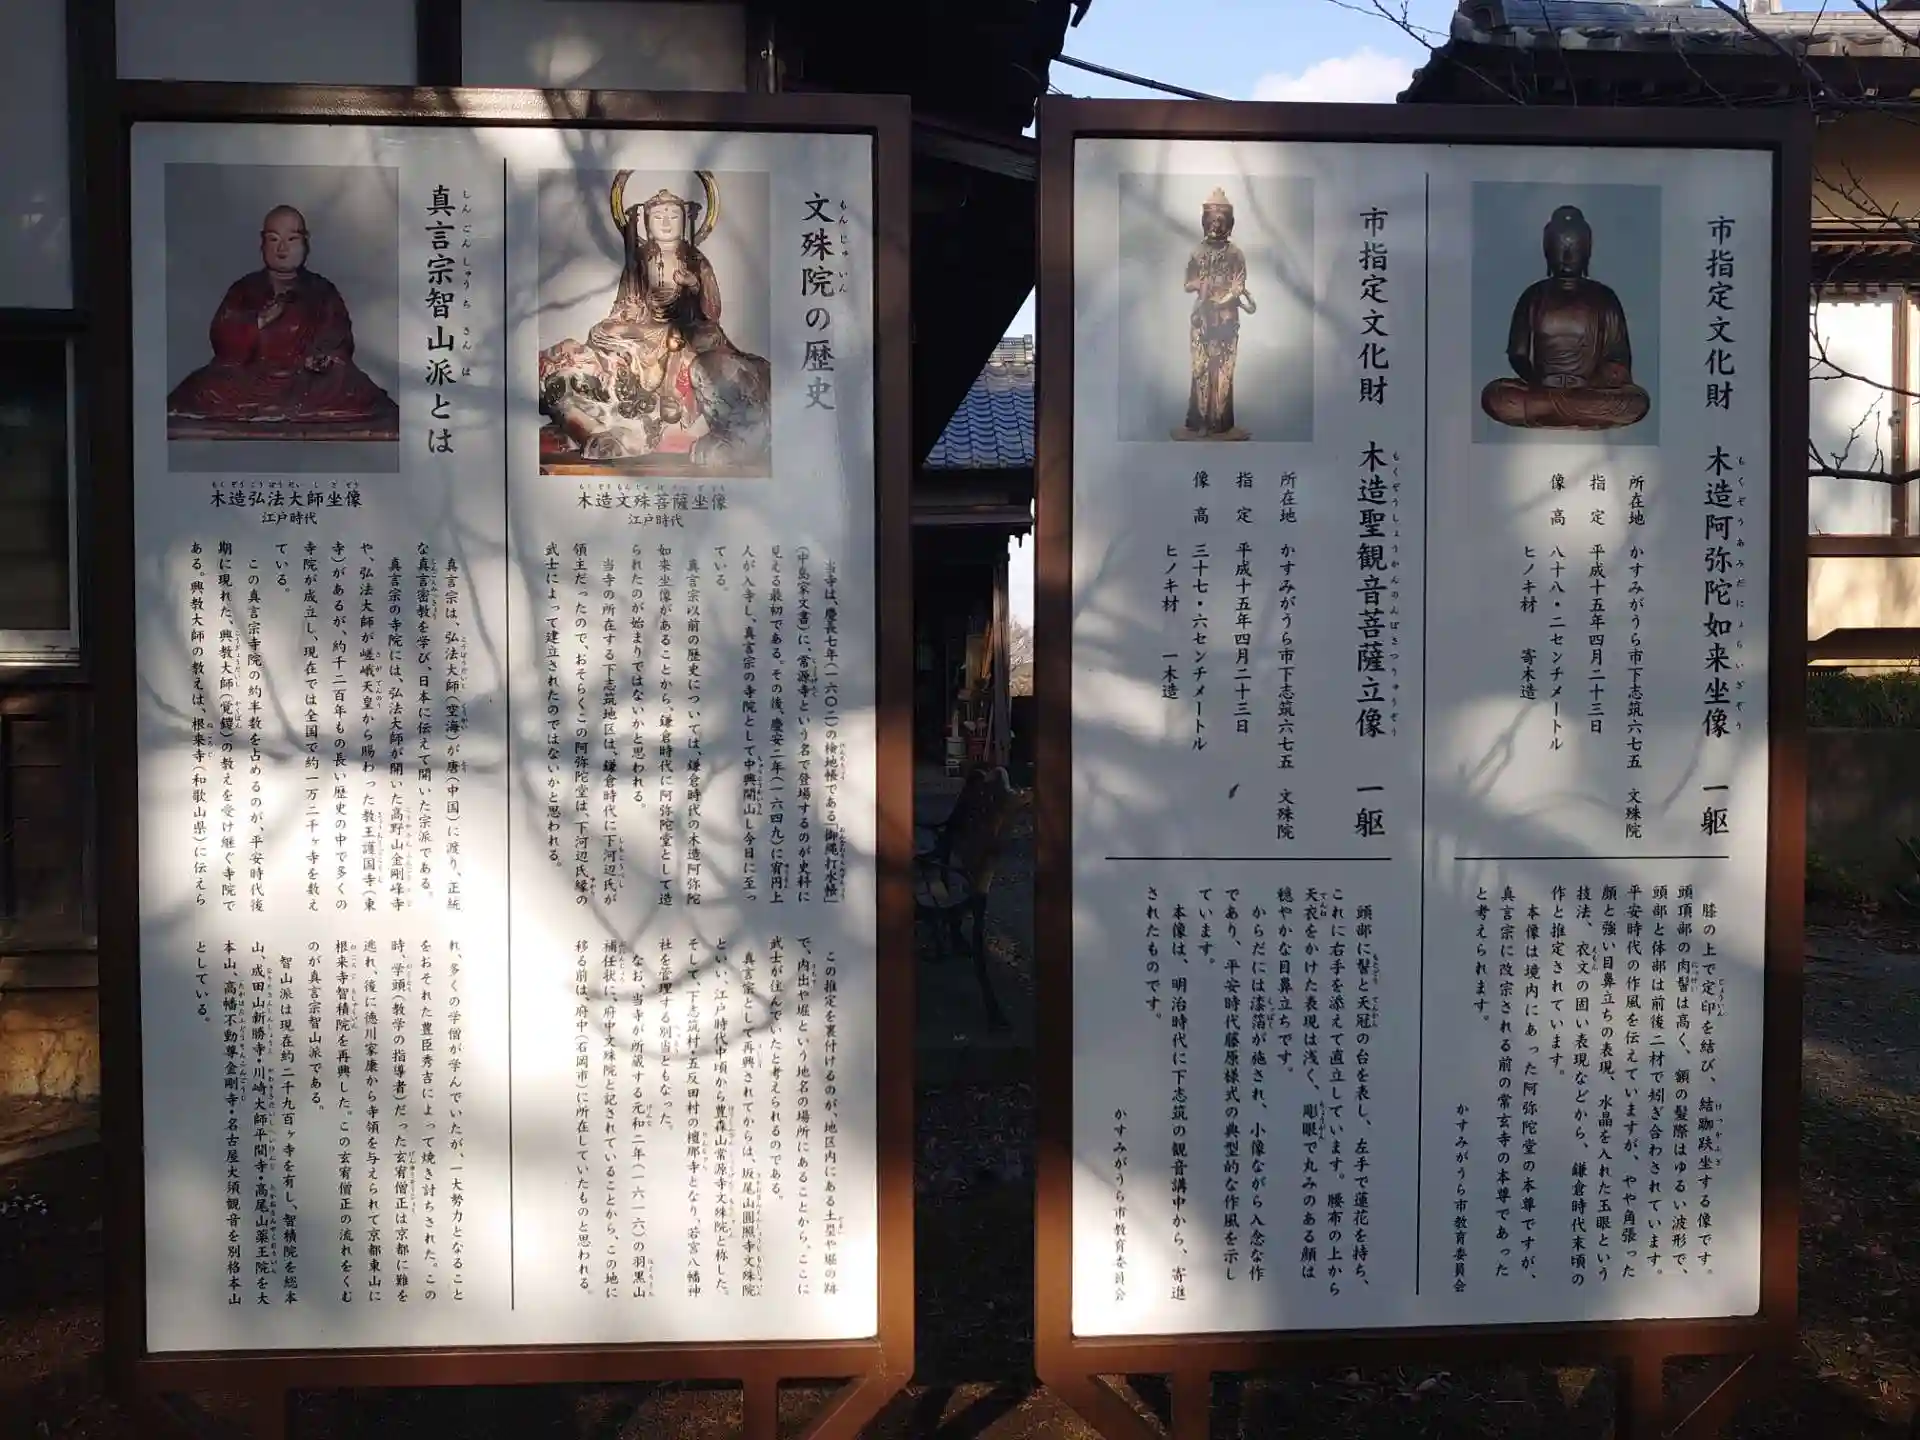 市指定文化財　木造阿弥陀如来坐像　一躯
所在地　かすみがうら市下志筑六七五　文殊院
指　定　平成十五年四月二十三日
像　高　八十八・二センチメートル
ヒノキ材　寄木造
膝の上で定印を結び、結跏趺坐する像です。
頭頂部の肉髻は高く、額の髪際はゆるい波形で、
頭部と体部は前後二材で矧ぎ合わされています。
平安時代の作風を伝えていますが、やや角張った
顔と強い目鼻立ちの表現、水晶を入れた玉眼という
技法、衣文の固い表現などから、鎌倉時代末頃の
作と推定されています。
本像は境内にあった阿弥陀堂の本尊ですが、
真言宗に改宗される前の常玄寺の本尊であった
と考えられます。
かすみがうら市教育委員会
市指定文化財　木造聖観音菩薩立像　一躯
所在地　かすみがうら市下志筑六七五　文殊院
指　定　平成十五年四月二十三日
像　高　三十七・六センチメートル
ヒノキ材　一木造
頭部に髻と天冠の台を表し、左手で蓮花を持ち、
これに右手を添えて直立しています。腰布の上から
天衣をかけた表現は浅く、彫眼で丸みのある顔は
穏やかな目鼻立ちです。
からだには漆箔が施され、小像ながら入念な作
であり、平安時代藤原様式の典型的な作風を示し
ています。
本像は、明治時代に下志筑の観音講中から、寄進
されたものです。
かすみがうら市教育委員会
文殊院の歴史
木造文殊菩薩坐像
江戸時代
当寺は、慶長七年(一六〇二)の検地帳である「御縄打水帳」
(中島家文書)に、常源寺という名で登場するのが史料に
見える最初である。その後、慶安二年(一六四九)に宥円上
人が入寺し、真言宗の寺院として中興開山し今日に至っ
ている。
真言宗以前の歴史については、鎌倉時代の木造阿弥陀
如来坐像があることから、鎌倉時代に阿弥陀堂として造
られたのが始まりではないかと思われる。
当寺の所在する下志筑地区は、鎌倉時代に下河辺氏が
領主だったので、おそらくこの阿弥陀堂は、下河辺氏縁の
武士によって建立されたのではないかと思われる。
この推定を裏付けるのが、地区内にある土塁や堀の跡
で、内出や堀という地名の場所にあることから、ここに
武士が住んでいたと考えられるのである。
真言宗として再興されてからは、坂尾山圓照寺文殊院
といい、江戸時代中頃から豊森山常源寺文殊院と称した。
そして、下志筑村・五反田村の檀那寺となり、若宮八幡神
社を管理する別当ともなった。
なお、当寺が所蔵する元和二年(一六一六)の羽黒山
補任状に、府中文殊院と記されていることから、この地に
移る前は、府中(石岡市)に所在していたものと思われる。
真言宗智山派とは
木造弘法大師坐像
江戸時代
真言宗は、弘法大師(空海)が唐(中国)に渡り、正統
な真言密教を学び、日本に伝えて開いた宗派である。
真言宗の寺院には、弘法大師が開いた高野山金剛峰寺
や、弘法大師が嵯峨天皇から賜わった教王護国寺(東
寺)があるが、約千二百年もの長い歴史の中で多くの
寺院が成立し、現在では全国で約一万二千ヶ寺を数え
ている。
この真言宗寺院の約半数を占めるのが、平安時代後
期に現れた、興教大師(覚鑁)の教えを受け継ぐ寺院で
ある。興教大師の教えは、根来寺(和歌山県)に伝えら
れ、多くの学僧が学んでいたが、一大勢力となること
をおそれた豊臣秀吉によって焼き討ちされた。この
時、学頭(教学の指導者)だった玄宥僧正は京都に難を
逃れ、後に徳川家康から寺領を与えられて京都東山に
根来寺智積院を再興した。この玄宥僧正の流れをくむ
のが真言宗智山派である。
智山派は現在約二千九百ヶ寺を有し、智積院を総本
山、成田山新勝寺・川崎大師平間寺・高尾山薬王院を大
本山、高幡不動尊金剛寺・名古屋大須観音を別格本山
としている。